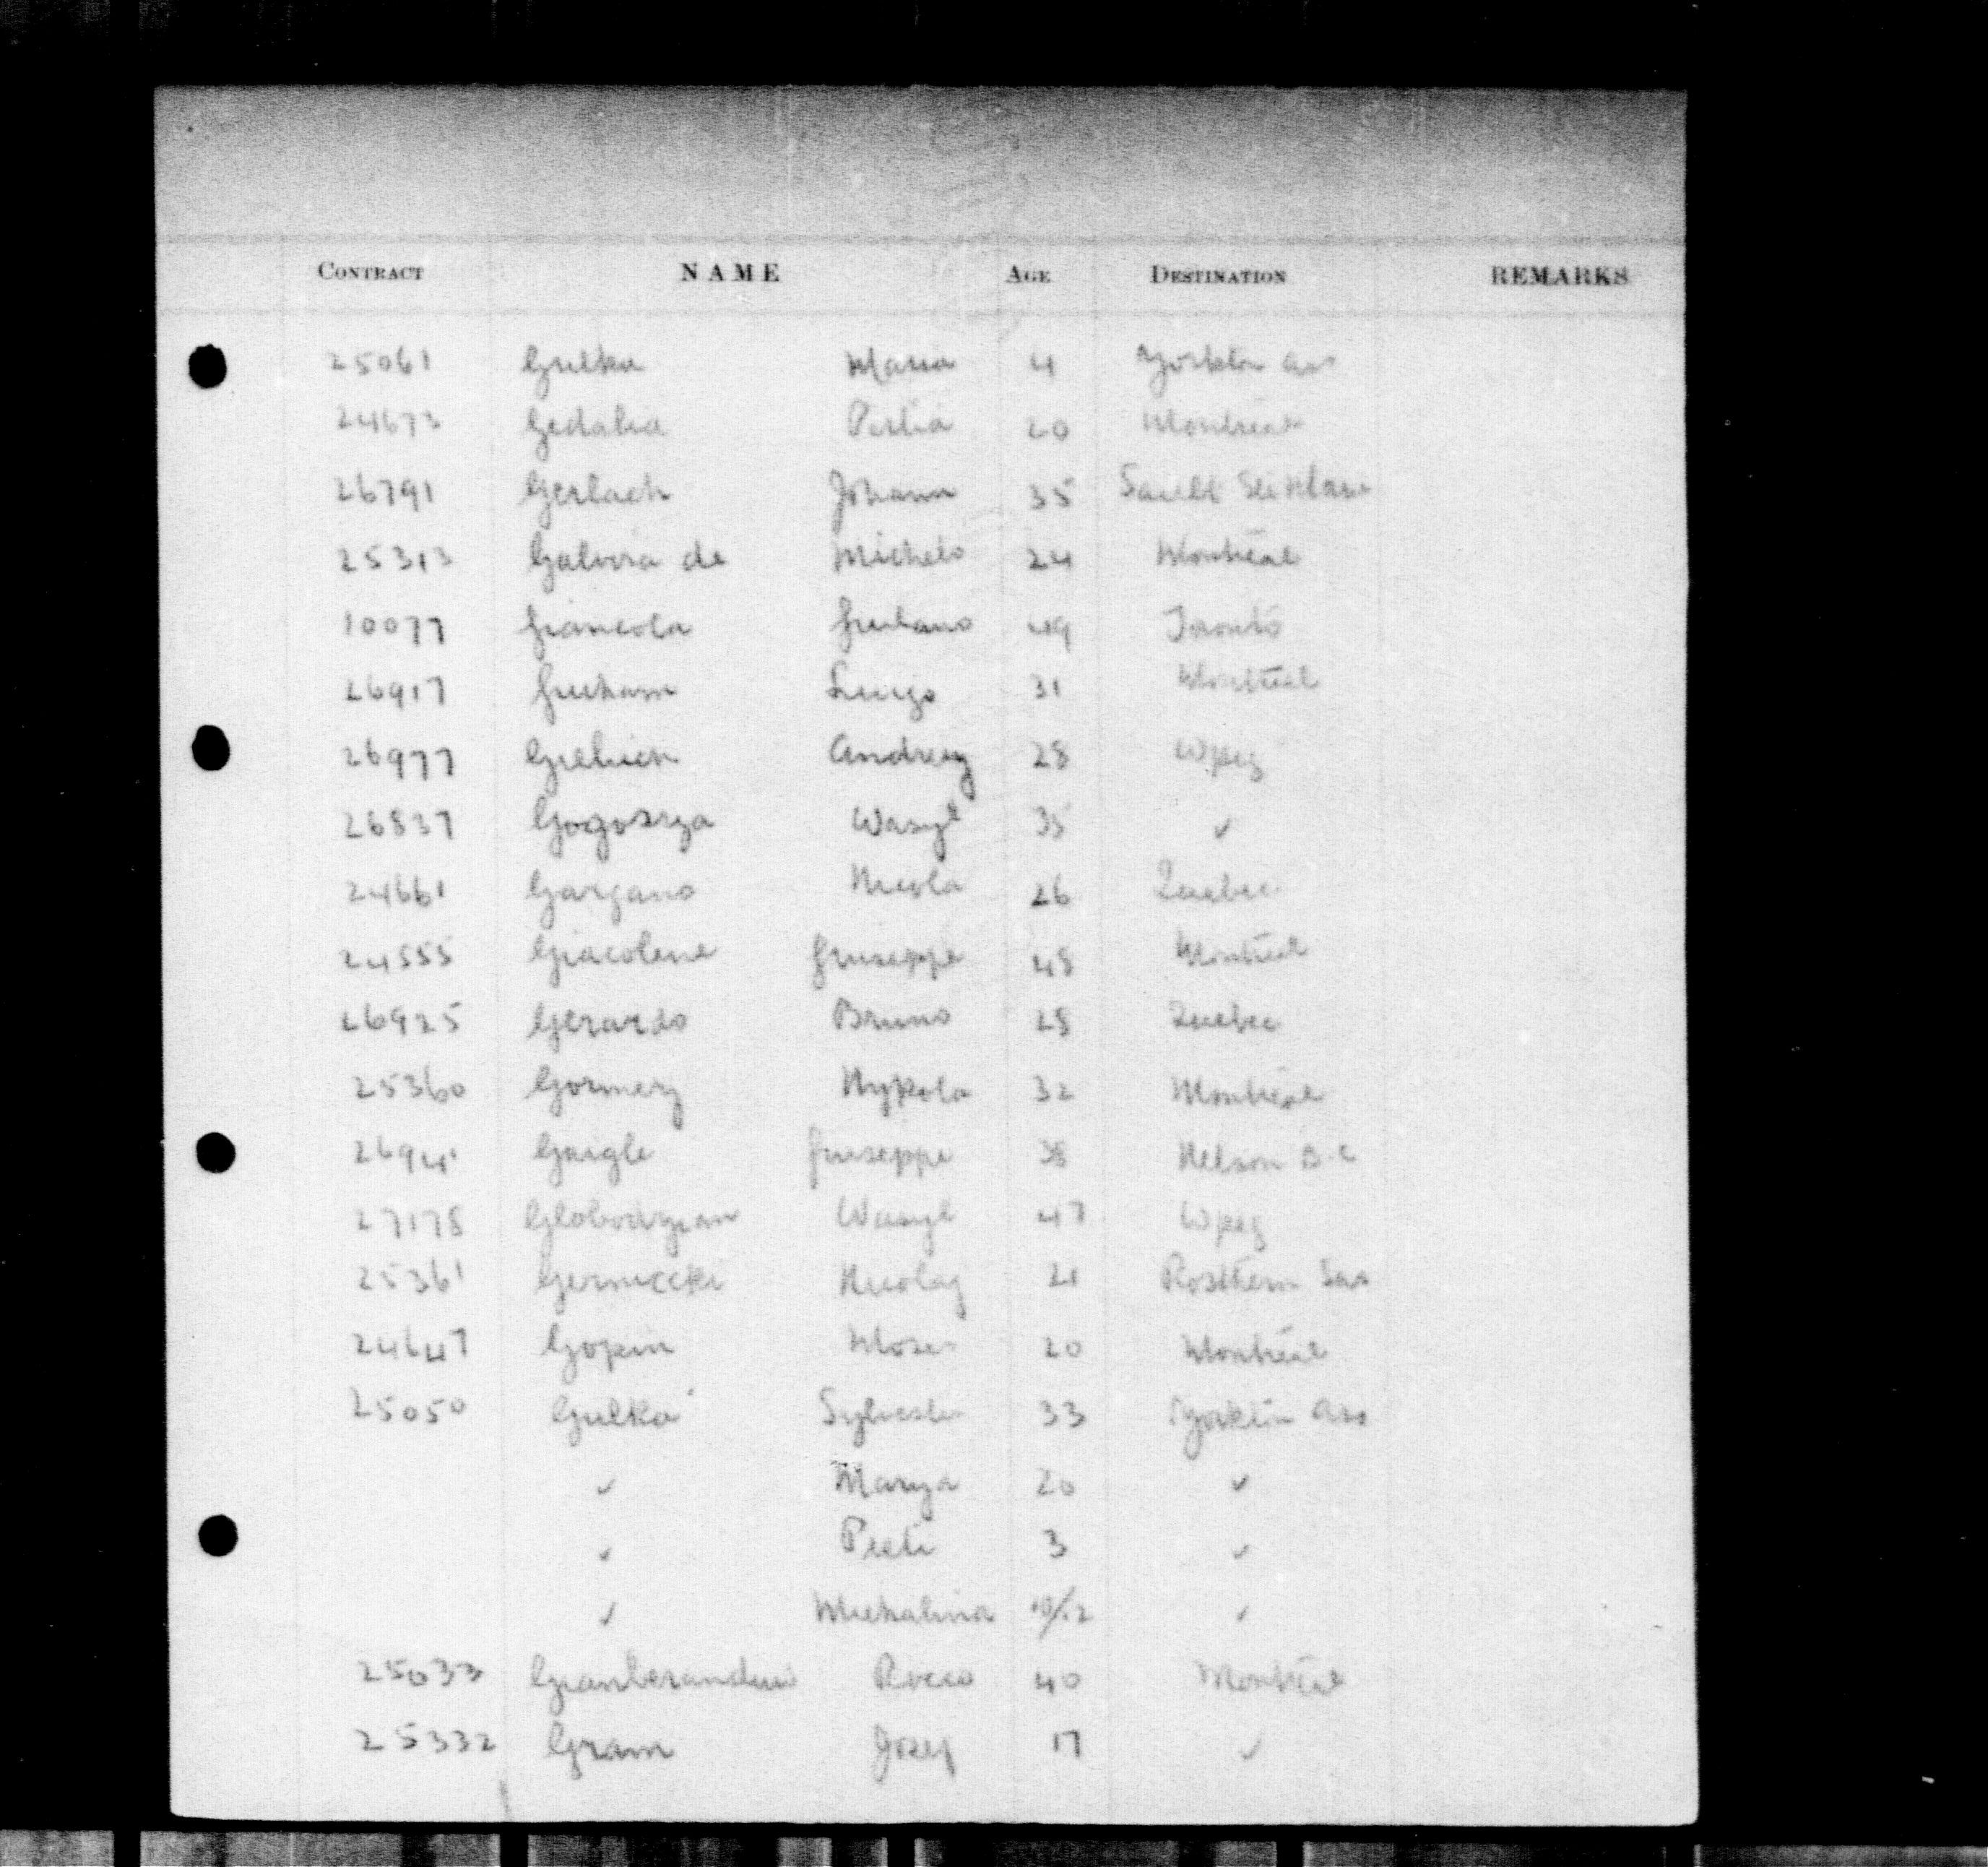 CONTRACT NAME AGE DESTINATION REMARKS
25061 Gulka Maria 4 Yorkton
24673 Gedalia Perlia 20 Montreal
26791 Gerlach Johann 35 Sault Ste Marie
25313 Galvira de Michele 24 Montréal
10077 Giancola Giuliano 49 Toronto
26917 Luigo 31 Montréal
26977 Andrey 28 Wpeg
26837 Gogosza Wasyl 35 ✓
24661 Gargano Nicola 26 Quebec
24555 Giacolene Giuseppe 48 Montréal
26925 Gerardo Bruno 28 Quebec
25360 Gormey Mykola 32 Montréal
Gaigle Giuseppe 38 Nelson B.C
27178 Wasyl 47 Wpeg
25361 Nicolaj 21 Rosthern Sas
24647 Gopin Moses 20 Montréal
25050 Gulka Sylvester 33 Yorkton
✓ Marya 20 ✓
✓ 3 ✓
✓ Michalina 10/12 ✓
25033 Rocco 40 Montréal
25332 Gram Josef 17 ✓